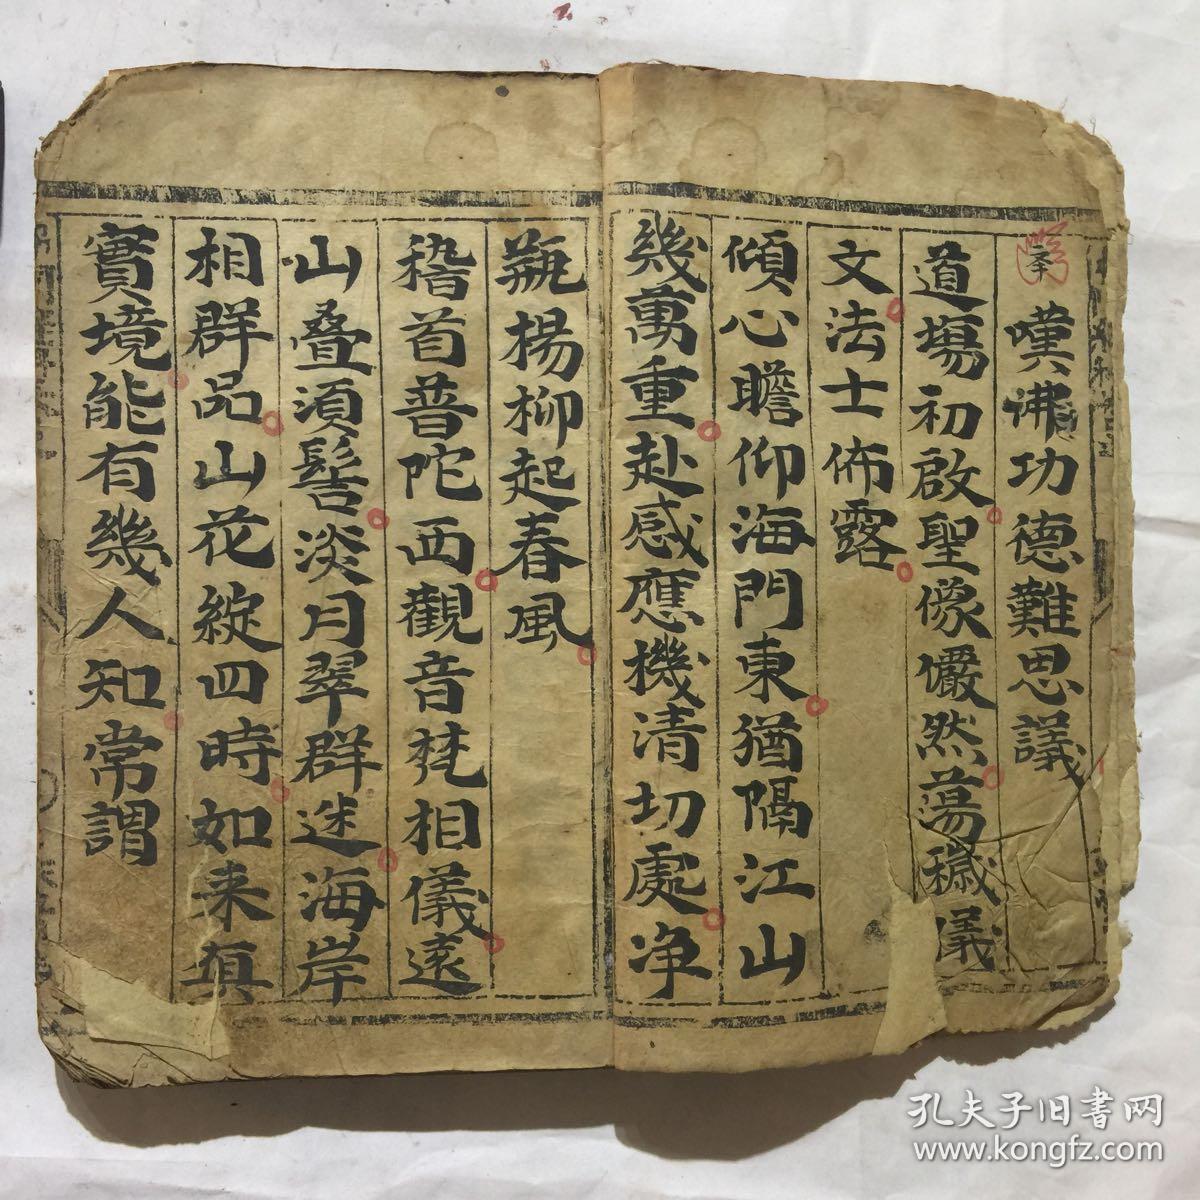 嘆佛功德難思議
道塲初啟聖像儼然蕩穢儀
文法士佈露
傾心瞻仰海門東猶隔江山
幾萬重赴感應機清切處净
瓶楊柳起春風
稽首普陀西觀音梵相儀遠
山叠湏髻淡月翠群迷海岸
相群品山花綻四時如来真
實境能有幾人知常謂
孔夫子旧書网
www.kongfz.com